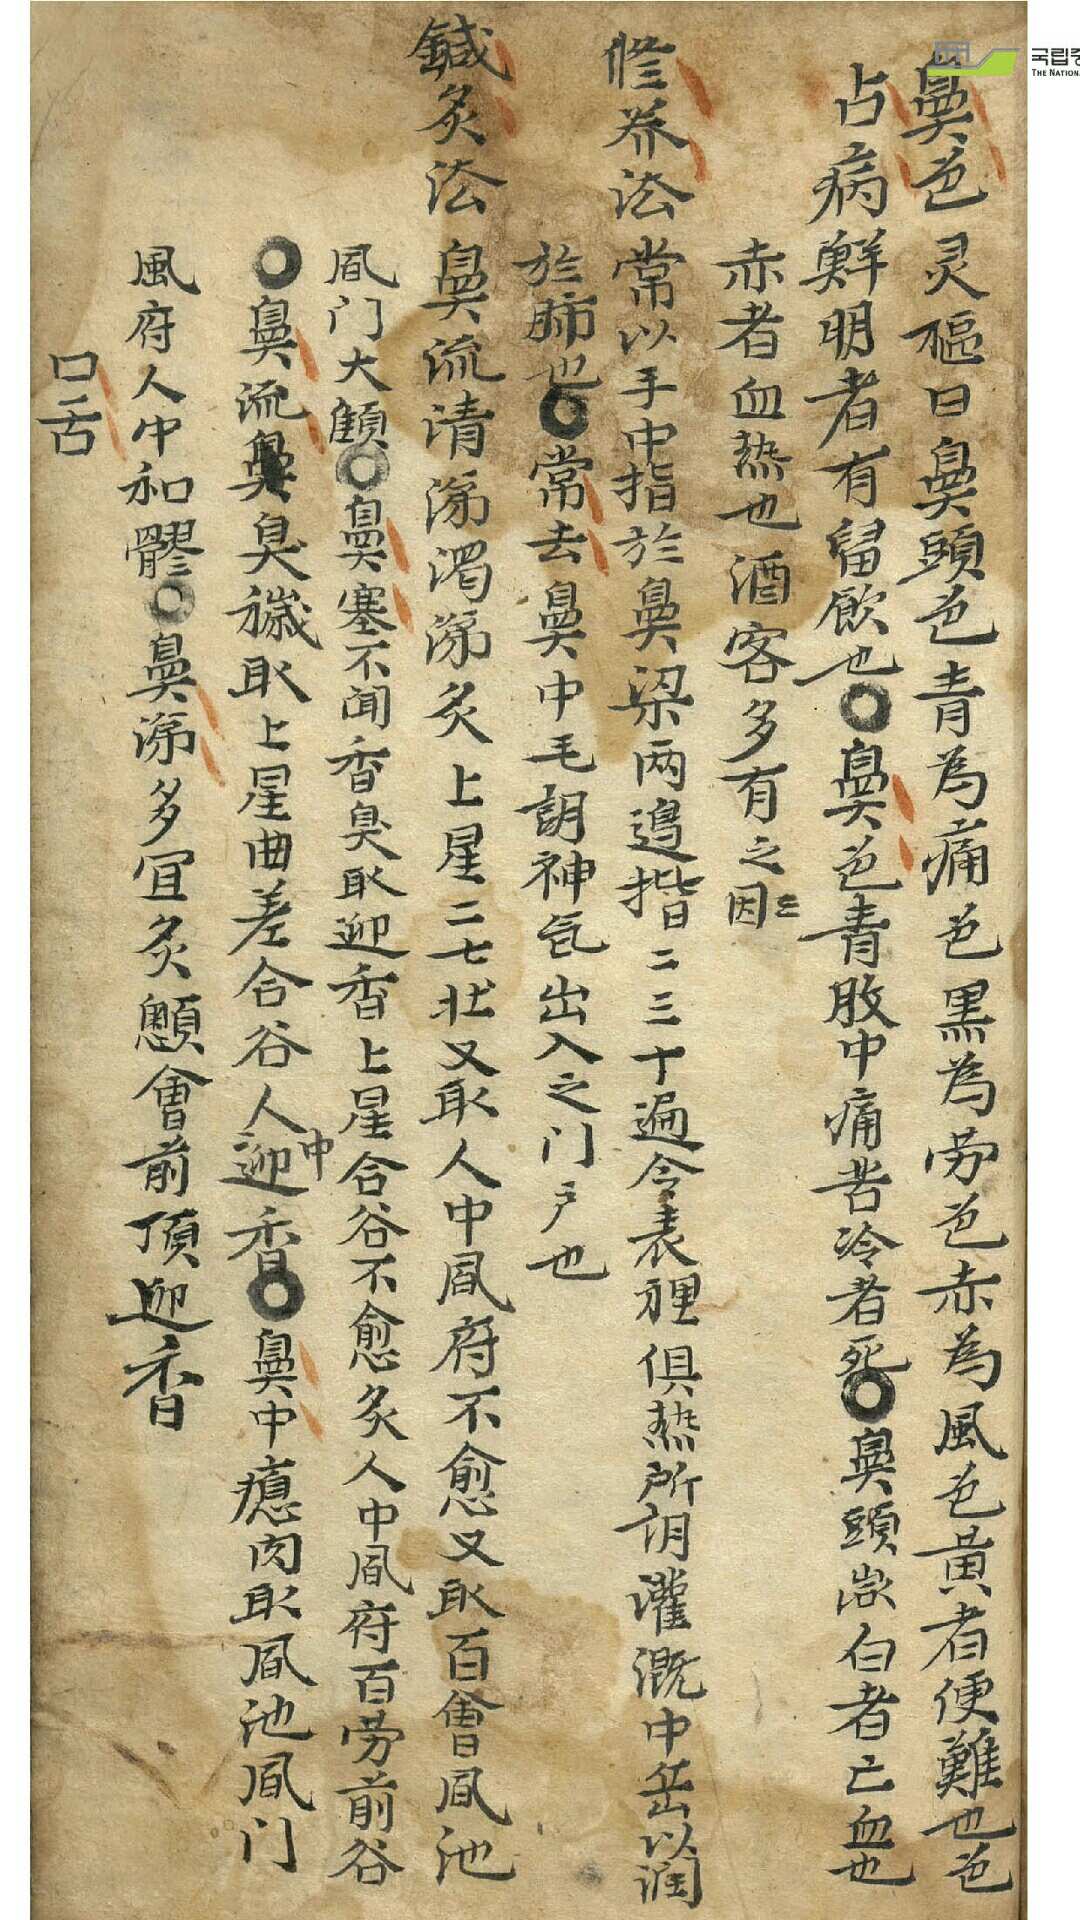 鼻色 灵樞曰鼻頭色青為痛色黑為劳色赤為風色黃者便難也色
占病 鮮明者有留飮也〇鼻色青腹中痛苦冷者死〇鼻頭㣲白者亡血也
赤者血热也酒客多有之
修养法 常以手中指於鼻梁两邉揩二三十遍令表裡俱热所謂灌漑中岳以润
於肺也〇常去鼻中毛謂神气出入之门户也
鍼灸法 鼻流清涕濁涕灸上星二七壮又取人中風府不愈又取百會風池
風门大顀〇鼻塞不闻香臭取迎香上星合谷不愈灸人中風府百劳前谷
〇鼻流臭穢取上星曲差合谷人中迎香〇鼻中瘜肉取風池風门
風府人中和髎〇鼻涕多宜灸顖會前頂迎香
口舌
국립중
THE NATIONA